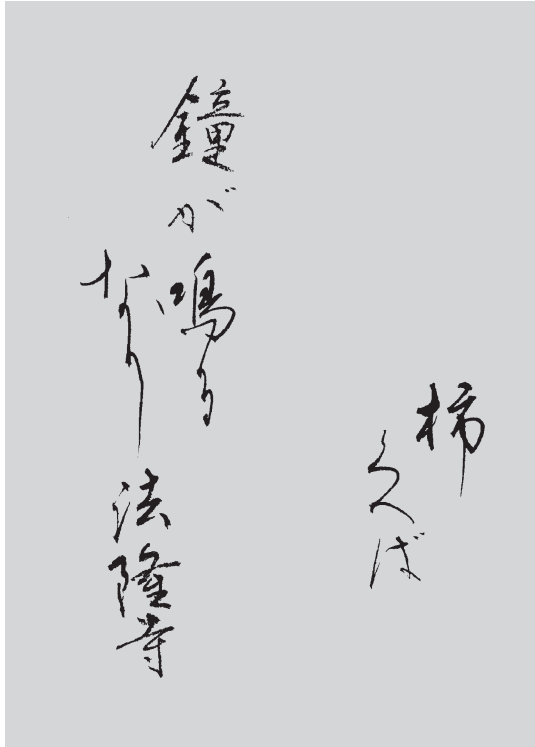 柿
くへば
鐘が鳴る
なり法隆寺